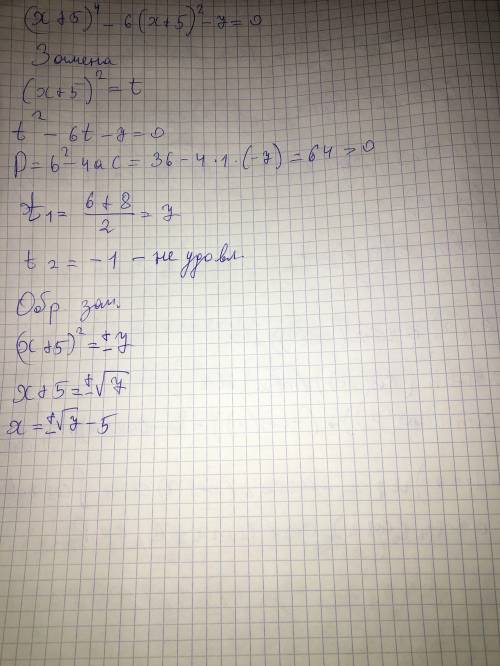 (x+5)⁴ - 6(x+5)² - 7 = 0
Замена
(x+5)² = t
t² - 6t - 7 = 0
D = b² - 4ac = 36 - 4·1·(-7) = 64 > 0
t₁ = (6+8)/2 = 7
t₂ = -1 - не удовл.
Обр зам.
(x+5)² = ±7
x+5 = ±√7
x = ±√7 - 5